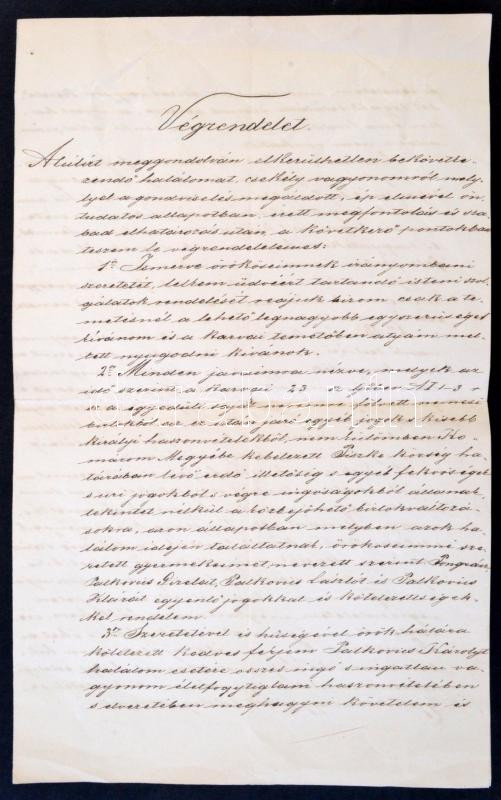 Végrendelet.
Alulirt meggondolván elkerülhetlen bekövetke-
zendő halálomat, csekély vagyonomról mely-
lyel a gondviselés megáldott, ép elmével ön-
tudatos állapotban, érett megfontolás és sza-
bad elhatározás után a következő pontokban
teszem le végrendeletemet:
1ör Ismerve örököseimnek irányombani
szeretetét, lelkem üdvéért tartandó isteni szol-
gálatok rendelését reájuk bizom, csak a te-
metésnél a lehető legnagyobb egyszerüséget
kivánom és a karvai temetőben atyám mel-
lett nyugodni kivánok.
2or Minden javaimra nézve, melyek az
idő szerint a karvai 23
s a egyedüli saját nevemre irt nemesi
birtokból az ez után járó egyéb jogok s kisebb
királyi haszonvételekből, nem különben Ko-
márom Megyébe kebelezett Piszke község ha-
tárában lévő erdő illetőség s egyéb fekvőségek
s uri jogokból s végre ingóságokból állanak,
tekintet nélkül a közbejöhető birtokváltozá-
sokra, azon állapotban melyben azok ha-
lálom idején találtatnak, örököseimmé sze-
retett gyermekeimet nevezett szerint Pongrácz
Palkovics Gizelát, Palkovics Lászlót és Palkovics
Klárát egyenlő jogokkal és kötelezettségek-
kel rendelem.
3or Szeretetével és hűségével örök hálára
kötelezett kedves férjem Palkovics Károlyt
halálom esetére összes ingó s ingatlan va-
gyonom élelfogytiglani haszonvételében
s élvezetében meghagyni követelem és